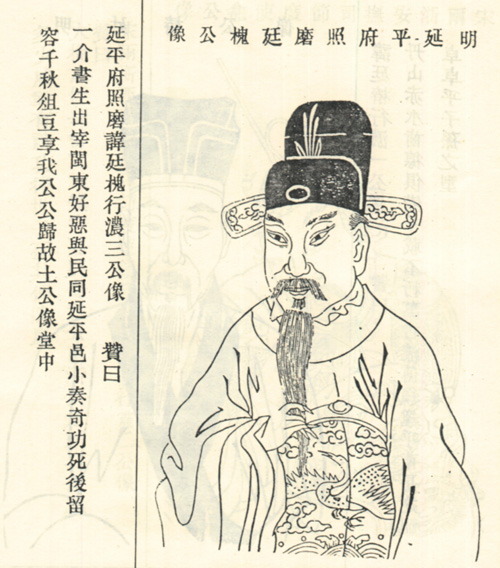 明延平府照磨廷槐公像
延平府照磨諱廷槐行濃三公像 贊曰
一介書生出宰閩東好惡與民同延平邑小奏奇功死後留
容千秋俎豆享我公公歸故土公像堂中